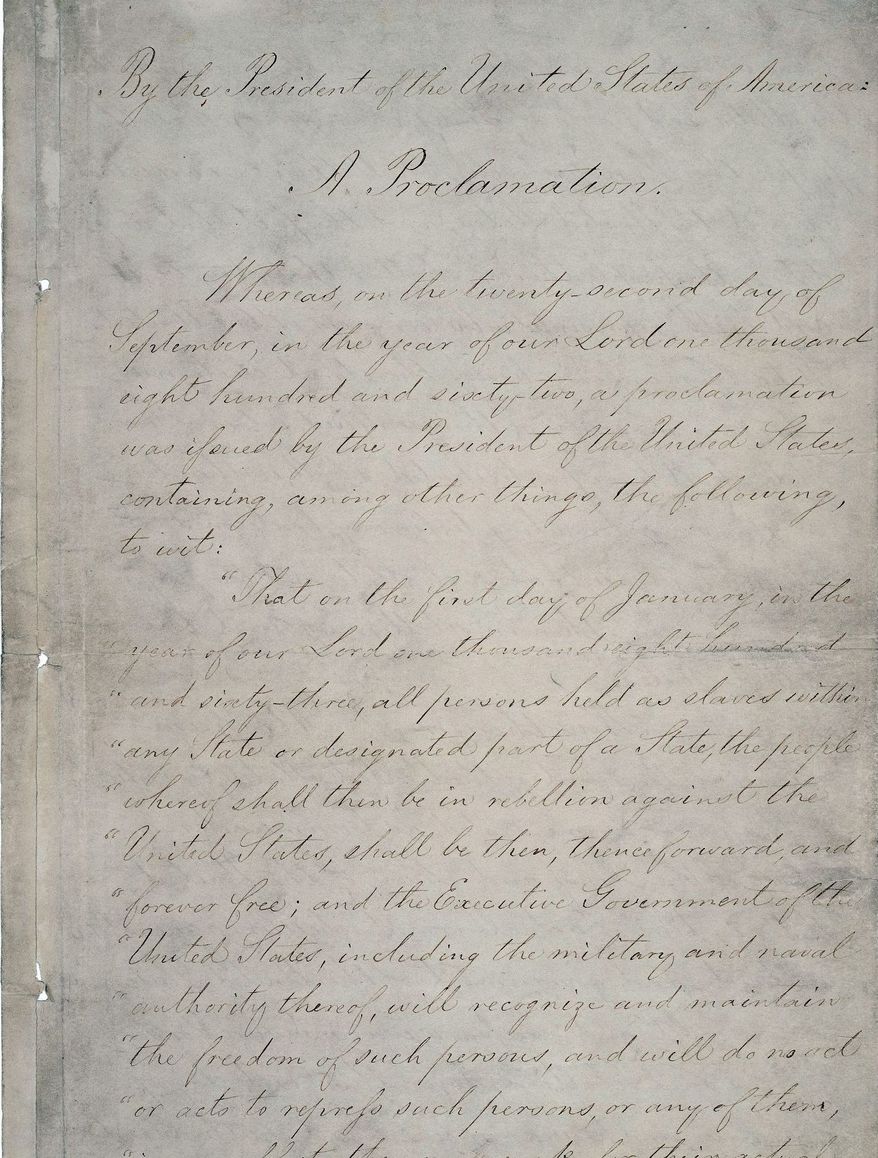 By the President of the United States of America:
A Proclamation.
Whereas, on the twenty-second day of
September, in the year of our Lord one thousand
eight hundred and sixty-two, a proclamation
was issued by the President of the United States,
containing, among other things, the following,
to wit:
"That on the first day of January, in the
"year of our Lord one thousand eight hundred
"and sixty-three, all persons held as slaves within
"any State or designated part of a State, the people
"whereof shall then be in rebellion against the
"United States, shall be then, thenceforward, and
"forever free; and the Executive Government of the
"United States, including the military and naval
"authority thereof, will recognize and maintain
"the freedom of such persons, and will do no act
"or acts to repress such persons, or any of them,